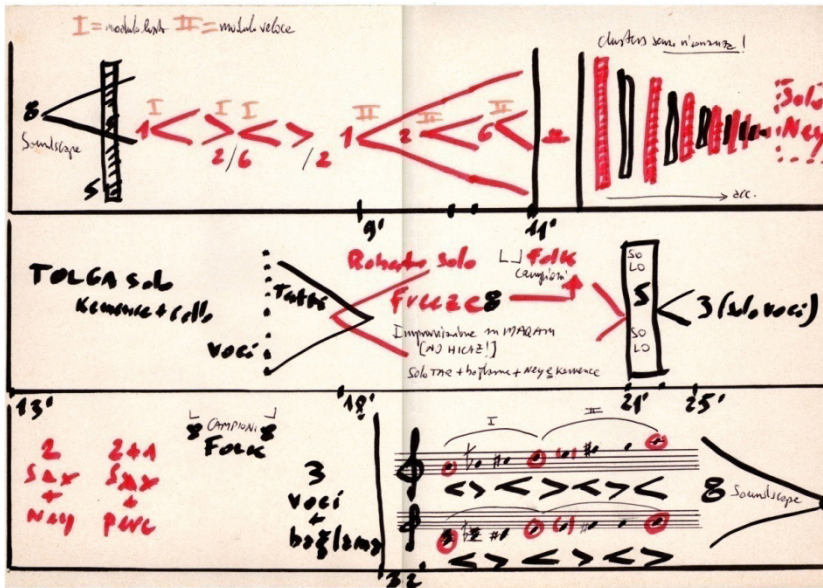 I = modulo lento II = modulo veloce
clusters senza risonanza!
8
Soundscape
5
I I I II II II
1 2/6 /2 1 2 6 =
Solo
Ney
acc.
9' 11'
TOLGA solo
Kemence + cello
Tutti
voci
Roberto Solo
Freeze 8
Folk
campioni
Improvvisazione in MAQAM
[NO HICAZ!]
Solo TAR + bağlama + Ney e Kemence
SO
LO
5
SO
LO
3 (solo voci)
13' 18' 21' 25'
2
Sax
+
Ney
2+1
Sax
+
perc
8 CAMPIONI 8
FOLK
3
voci
+
bağlama
I II
8 Soundscape
32'